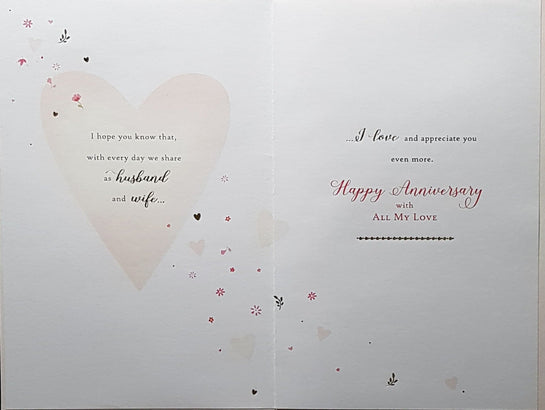 I hope you know that,
with every day we share
as husband
and wife...
...I love and appreciate you
even more.
Happy Anniversary
with
ALL MY LOVE